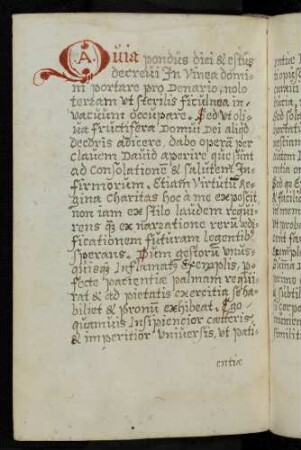 QVia pondus diei & estus
decrevi In Vinea domi-
ni portare pro Denario, nolo
terram vt sterilis ficulnea in
vacuum occupare. Sed vt oli
va fructifera Domui Dei aliqd
decoris adicere, dabo operã per
clauem Dauid aperire que sunt
ad Consolatione & salutem In
firmorum. Etiam Virtutũ Re
gina Charitas hoc a me exposcit
non iam ex stilo laudem requi
rens q̃ ex narratione verũ ædi
ficationem futuram legentibꝰ
sperans. Piim gestorũ vnus
quisq̃ Inflamatꝰ Exemplis, p
fecte pacientiæ palmam requi
rat & ad pietatis exercitia se ha
bilitet & pronũ exhibeat. Ego
quamuis Insipiencior cæteris
& imperitior vniuersis, vt pati-
entiæ